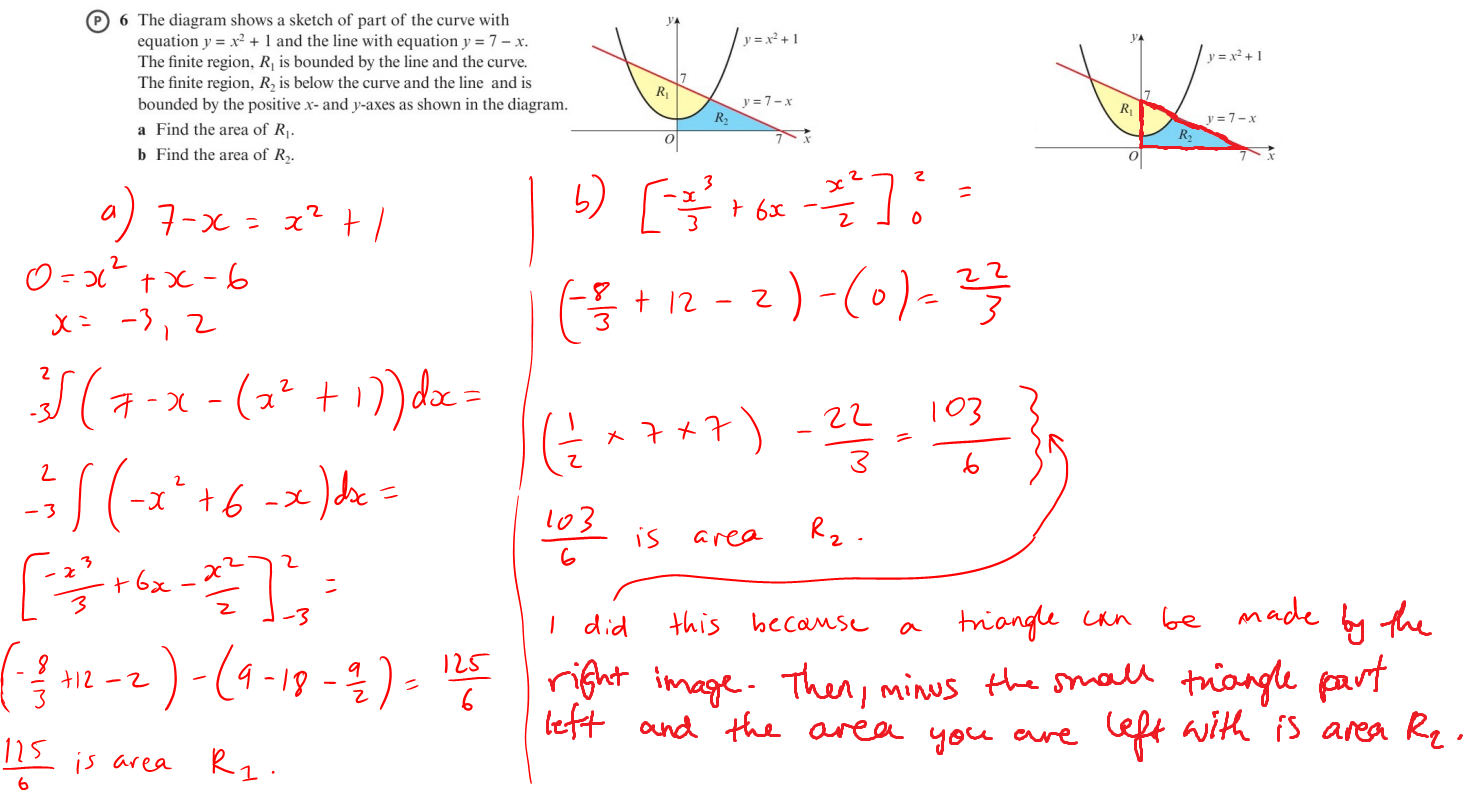 P 6 The diagram shows a sketch of part of the curve with
equation y = x² + 1 and the line with equation y = 7 − x.
The finite region, R₁ is bounded by the line and the curve.
The finite region, R₂ is below the curve and the line and is
bounded by the positive x- and y-axes as shown in the diagram.
a Find the area of R₁.
b Find the area of R₂.
y
y = x² + 1
7
R₁
y = 7 − x
R₂
O
7
x
y
y = x² + 1
7
R₁
y = 7 − x
R₂
O
7
x
a) 7-x = x² + 1
0 = x² + x - 6
x = -3, 2
₋₃²∫(7 - x - (x² + 1))dx =
₋₃²∫(-x² + 6 - x)dx =
[-x³/3 + 6x - x²/2]²₋₃ =
(-8/3 + 12 - 2) - (9 - 18 - 9/2) = 125/6
125/6 is area R₁.
b) [-x³/3 + 6x - x²/2]²₀ =
(-8/3 + 12 - 2) - (0) = 22/3
(1/2 × 7 × 7) - 22/3 = 103/6 }
103/6 is area R₂.
I did this because a triangle can be made by the
right image. Then, minus the small triangle part
left and the area you are left with is area R₂.